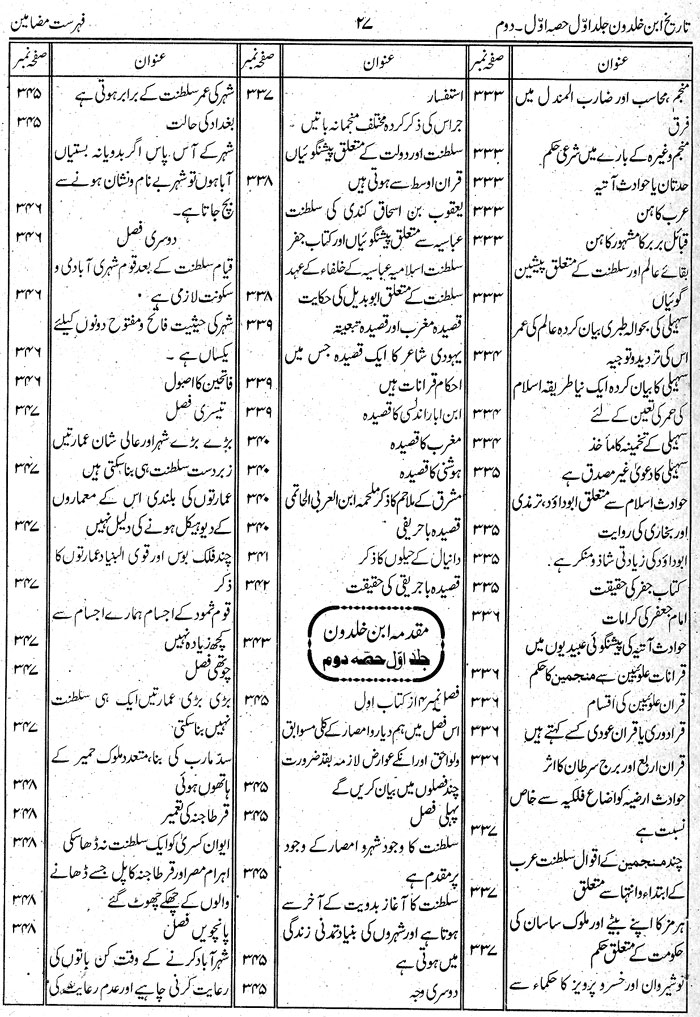 تاریخ ابن خلدون جلد اوّل حصہ اوّل۔ دوم
۲۷
فہرست مضامین
عنوان
صفحہ نمبر
منجم، محاسب اور ضارب المندل میں ۳۳۳
فرق
منجم وغیرہ کے بارے میں شرعی حکم ۳۳۳
حدثان یا حوادث آتیہ ۳۳۳
عرب کا ہن ۳۳۳
قبائل بربر کا مشہور کاہن ۳۳۳
بقائے عالم اور سلطنت کے متعلق پیشین
گوئیاں ۳۳۳
سہیلی کی بحوالہ طبری بیان کردہ عالم کی عمر
اس کی تردید و توجیہ ۳۳۴
سہیلی کا بیان کردہ ایک نیا طریقہ اسلام
کی عمر کی تعین کے لئے ۳۳۴
سہیلی کے تخمینہ کا مأخذ ۳۳۴
سہیلی کا دعویٰ غیر مصدق ہے ۳۳۵
حوادث اسلام سے متعلق ابوداؤد، ترمذی
اور بخاری کی روایت ۳۳۵
ابوداؤد کی زیادتی شاذ و منکر ہے۔ ۳۳۵
کتاب جفر کی حقیقت ۳۳۵
امام جعفر کی کرامات ۳۳۶
حوادث آتیہ کی پیشگوئی عبیدیوں میں
قرانات علوئیین سے منجمین کا حکم ۳۳۶
قران علوئیین کی اقسام ۳۳۶
قرادوری یا قران عودی کسے کہتے ہیں ۳۳۶
قران اربع اور برج سرطان کا اثر ۳۳۶
حوادث ارضیہ کو اضاع فلکیہ سے خاص
نسبت ہے ۳۳۷
چند منجمین کے اقوال سلطنت عرب
کے ابتداء و انتہا سے متعلق ۳۳۷
ہرمز کا اپنے بیٹے اور ملوک ساسان کی
حکومت کے متعلق حکم ۳۳۷
نوشیروان اور خسرو پرویز کا حکماء سے
عنوان
صفحہ نمبر
استفسار ۳۳۷
جراس کی ذکر کردہ مختلف منجمانہ باتیں
سلطنت اور دولت کے متعلق پیشگوئیاں
قران اوسط سے ہوتی ہیں ۳۳۸
یعقوب بن اسحاق کندی کی سلطنت
عباسیہ سے متعلق پیشگوئیاں اور کتاب جفر
سلطنت اسلامیہ عباسیہ کے خلفاء کے عہد
سلطنت کے متعلق ابوبدیل کی حکایت ۳۳۸
قصیدہ مغرب اور قصیدہ تبعیتہ ۳۳۹
یہودی شاعر کا ایک قصیدہ جس میں
احکام قرانات ہیں ۳۳۹
ابن ابار اندلسی کا قصیدہ ۳۳۹
مغرب کا قصیدہ ۳۴۰
ہوشنی کا قصیدہ ۳۴۰
مشرق کے ملاحم کا ذکر ملحمہ ابن العربی الحاتمی ۳۴۰
قصیدہ باحریقی ۳۴۰
دانیال کے حیلوں کا ذکر ۳۴۱
قصیدہ باجریقی کی حقیقت ۳۴۲
مقدمہ ابن خلدون
جلد اوّل حصہ دوم
۳۴۳
فصل نمبر ۴ از کتاب اول ۳۴۵
اس فصل میں ہم دیار و امصار کے کلی سوابق
ولواحق اور انکے عوارض لازمہ بقدر ضرورت
چند فصلوں میں بیان کریں گے ۳۴۵
پہلی فصل ۳۴۵
سلطنت کا وجود شہر و امصار کے وجود
پر مقدم ہے ۳۴۵
سلطنت کا آغاز بدویت کے آخر سے
ہوتا ہے اور شہروں کی بنیاد تمدنی زندگی
میں ہوتی ہے ۳۴۵
دوسری وجہ ۳۴۵
عنوان
صفحہ نمبر
شہر کی عمر سلطنت کے برابر ہوتی ہے ۳۴۵
بغداد کی حالت ۳۴۵
شہر کے آس پاس اگر بدویانہ بستیاں
آباد ہوں تو شہر بے نام و نشان ہونے سے
بچ جاتا ہے۔ ۳۴۶
دوسری فصل ۳۴۶
قیام سلطنت کے بعد قوم شہری آبادی و
سکونت لازمی ہے ۳۴۶
شہر کی حیثیت فاتح و مفتوح دونوں کیلئے
یکساں ہے۔ ۳۴۶
فاتحین کا اصول ۳۴۶
تیسری فصل ۳۴۷
بڑے بڑے شہر اور عالی شان عمارتیں
زبردست سلطنت ہی بنا سکتی ہیں ۳۴۷
عمارتوں کی بلندی اس کے معماروں
کے دیو ہیکل ہونے کی دلیل نہیں ۳۴۷
چند فلک بوس اور قوی البنیاد عمارتوں کا
ذکر ۳۴۷
قوم ثمود کے اجسام ہمارے اجسام سے
کچھ زیادہ نہیں ۳۴۷
چوتھی فصل ۳۴۷
بڑی بڑی عمارتیں ایک ہی سلطنت
نہیں بنا سکتی ۳۴۷
سد مارب کی بنا، متعدد ملوک حمیر کے
ہاتھوں ہوئی ۳۴۸
قرطاجنہ کی تعمیر ۲۴۸
ایوان کسریٰ کو ایک سلطنت نہ ڈھا سکی ۳۴۸
اہرام مصر اور قرطاجنہ کا پل جسے ڈھانے
والوں کے چھکے چھوٹ گئے ۳۴۸
پانچویں فصل ۳۴۸
شہر آباد کرنے کے وقت کن باتوں کی
رعایت کرنی چاہیے اور عدم رعایت کی